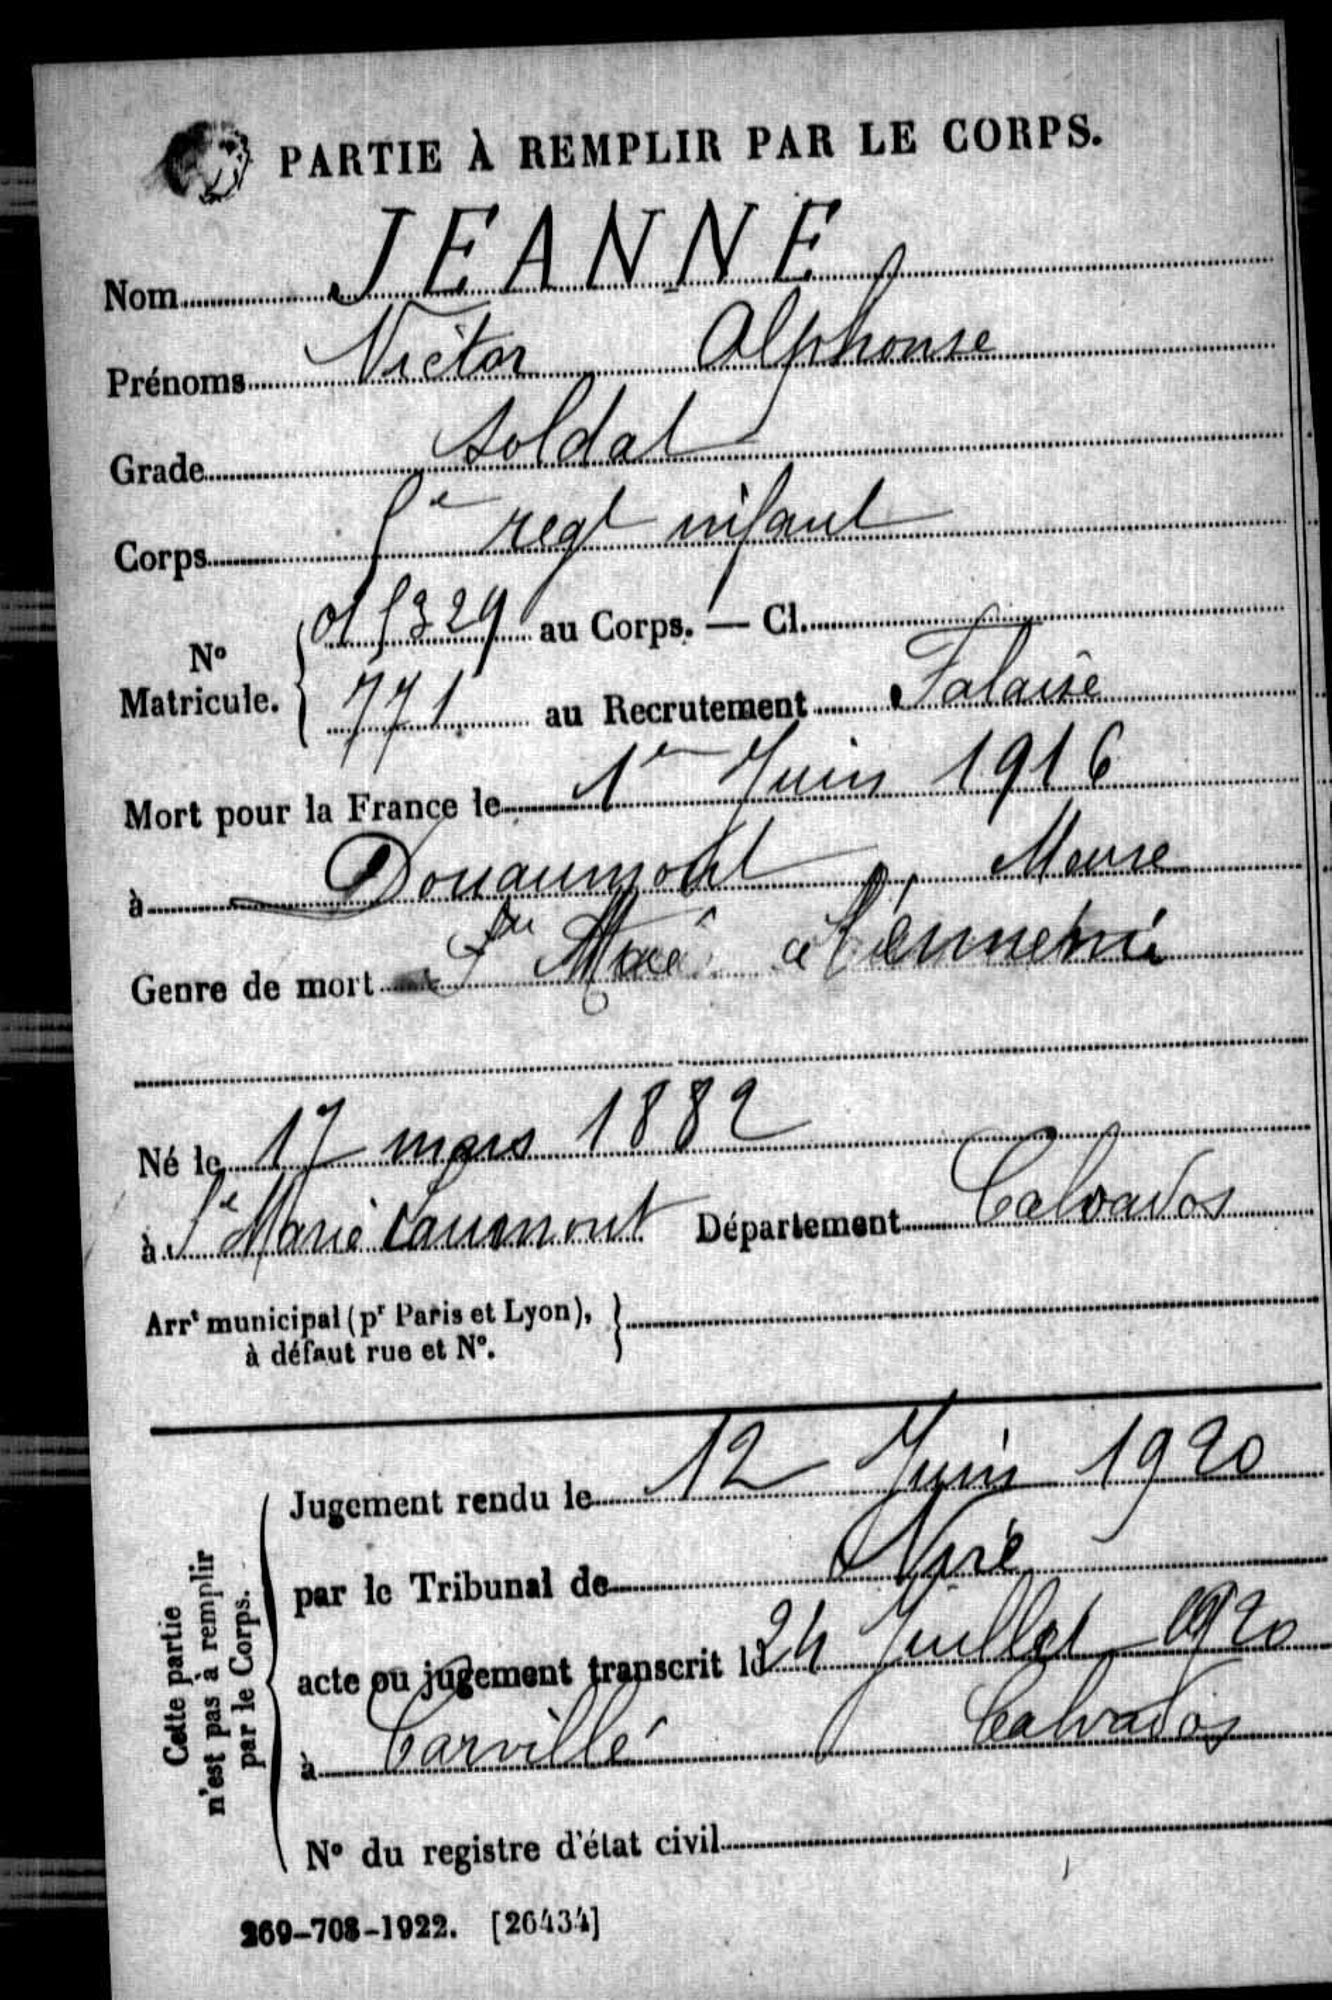 PARTIE À REMPLIR PAR LE CORPS.
Nom JEANNE
Prénoms Victor Alphonse
Grade soldat
Corps 5e regt infant
No Matricule. 015329 au Corps. — Cl.
771 au Recrutement Falaise
Mort pour la France le 1er Juin 1916
à Douaumont Meuse
Genre de mort à l'ennemi
Né le 17 mars 1882
à Ste Marie Laumont Département Calvados
Arrt municipal (pr Paris et Lyon),
à défaut rue et No.
Cette partie
n'est pas à remplir
par le Corps.
Jugement rendu le 12 Juin 1920
par le Tribunal de Vire
acte ou jugement transcrit le 24 Juillet 1920
à Carville Calvados
No du registre d'état civil
269-708-1922. [26434]